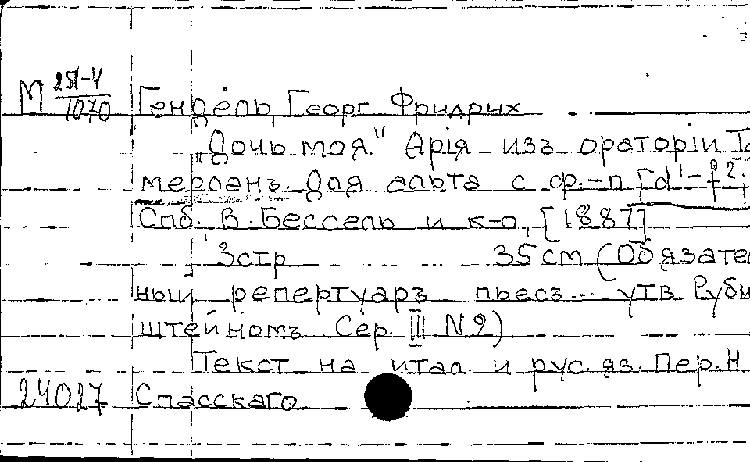 М 251-4/1070 Гендель Георг Фридрих
"Дочь моя." Арія изъ ораторіи Та
мерланъ. Для альта с ф.-п [d'-f²;
Спб. В. Бессель и к-о, [1887]
3стр 35 см (Обязате
ный репертуаръ пьесъ... утв Руби
штейномъ Сер. III N2)
Текст на итал и рус. яз. Пер. Н
24027 Спасскаго